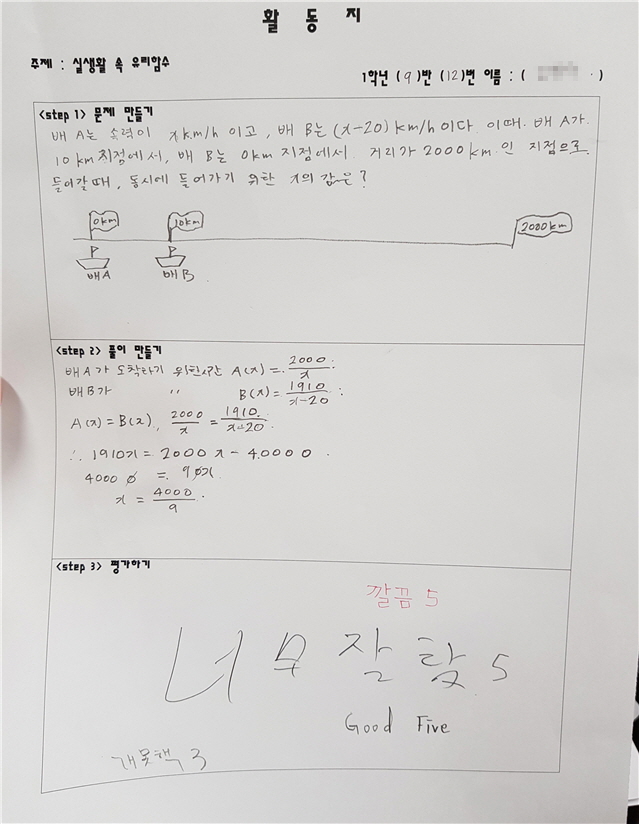 활 동 지
주제 : 실생활 속 유리함수
1학년 (9)반 (12)번 이름 : ( )
<step 1> 문제 만들기
배 A는 속력이 x km/h 이고, 배 B는 (x-20) km/h이다. 이때. 배 A가
10km 지점에서, 배 B는 0km 지점에서. 거리가 2000km.인 지점으로
들어갈때, 동시에 들어가기 위한 x의 값은?
0km 10km 2000km
P P
배A 배B
<step 2> 풀이 만들기
배A가 도착하기 위한시간 A(x) = 2000/x
배B가 〃 B(x) = 1910/x-20
A(x) = B(x), 2000/x = 1910/x-20
∴ 1910x = 2000x - 40000
40000 = 90x
x = 4000/9
<step 3> 평가하기
깔끔 5
너무 잘함 5
Good Five
3